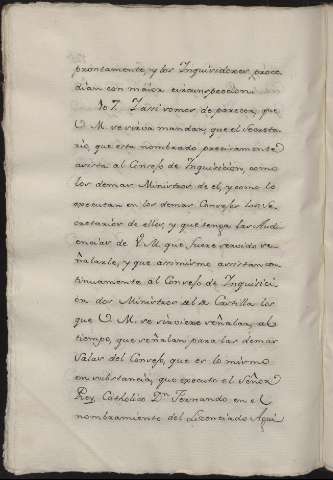 prontamente, y los Inquisidores, proce-
dian con maior circunspeccion.
107. Y assi somos de parecer, que
V. M. se sirva mandar, que el Secreta-
rio, que esta nombrado precisamente
assista al Consejo de Inquisicion, como
los demas Ministros de el, y como lo
executan en los demas Consejos los Se-
cretarios de ellos, y que tenga las Audi-
encias de V. M. que fuere servido se-
ñalarle, y que assimismo assistan con-
tinuamente al Consejo de Inquisici-
on dos Ministros del de Castilla los
que V. M. se sirviere señalar, al
tiempo, que señalan para las demas
Salas del Consejo, que es lo mismo
en substancia, que executo el Señor
Rey Catholico Dn. Fernando, en el
nombramiento del Licenciado Agui